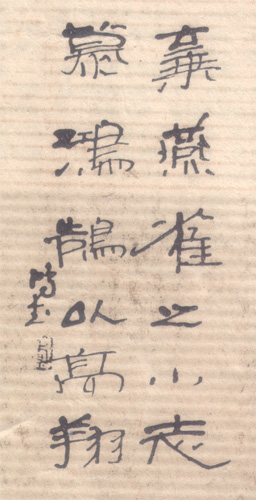 棄燕雀之小志
慕鴻鵠以高翔